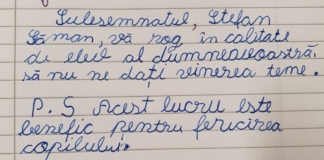 Subsemnatul, Ștefan
Șoman, vă rog în calitate
de elev al dumneavoastră,
să nu ne dați vinerea teme.
P.S Acest lucru este
benefic pentru fericirea
copilului.